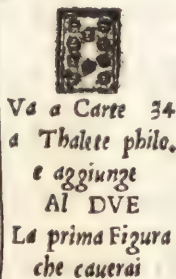 Va a Carte 34
a Thalete philo.
e aggiunge
Al DVE
La prima Figura
che cauerai